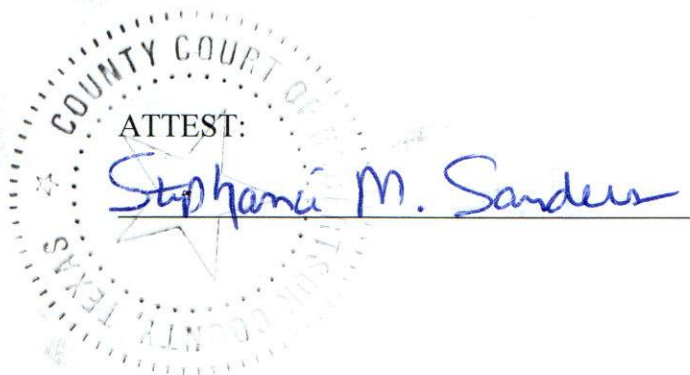 COUNTY COURT OF
COUNTY, TEXAS
ATTEST:
Stephanie M. Sanders